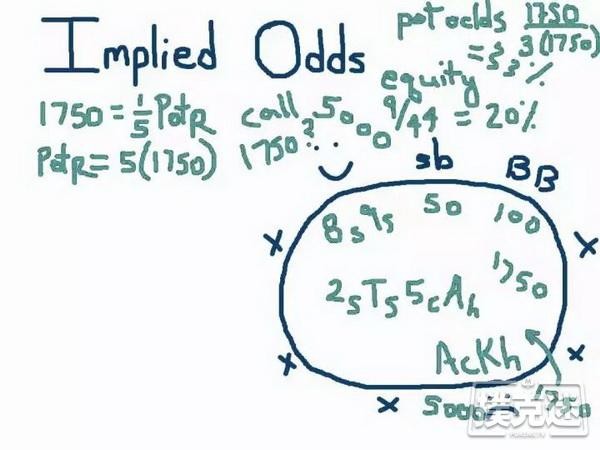 Implied Odds
pot odds 1750/3(1750)
= 33%
equity
9/44 = 20%
1750 = 1/5 PotR
PotR = 5(1750)
call
1750?
5000
sb
BB
8s 9s
50
100
1750
2s Ts 5c Ah
Ac Kh
5000
1750
扑克迷